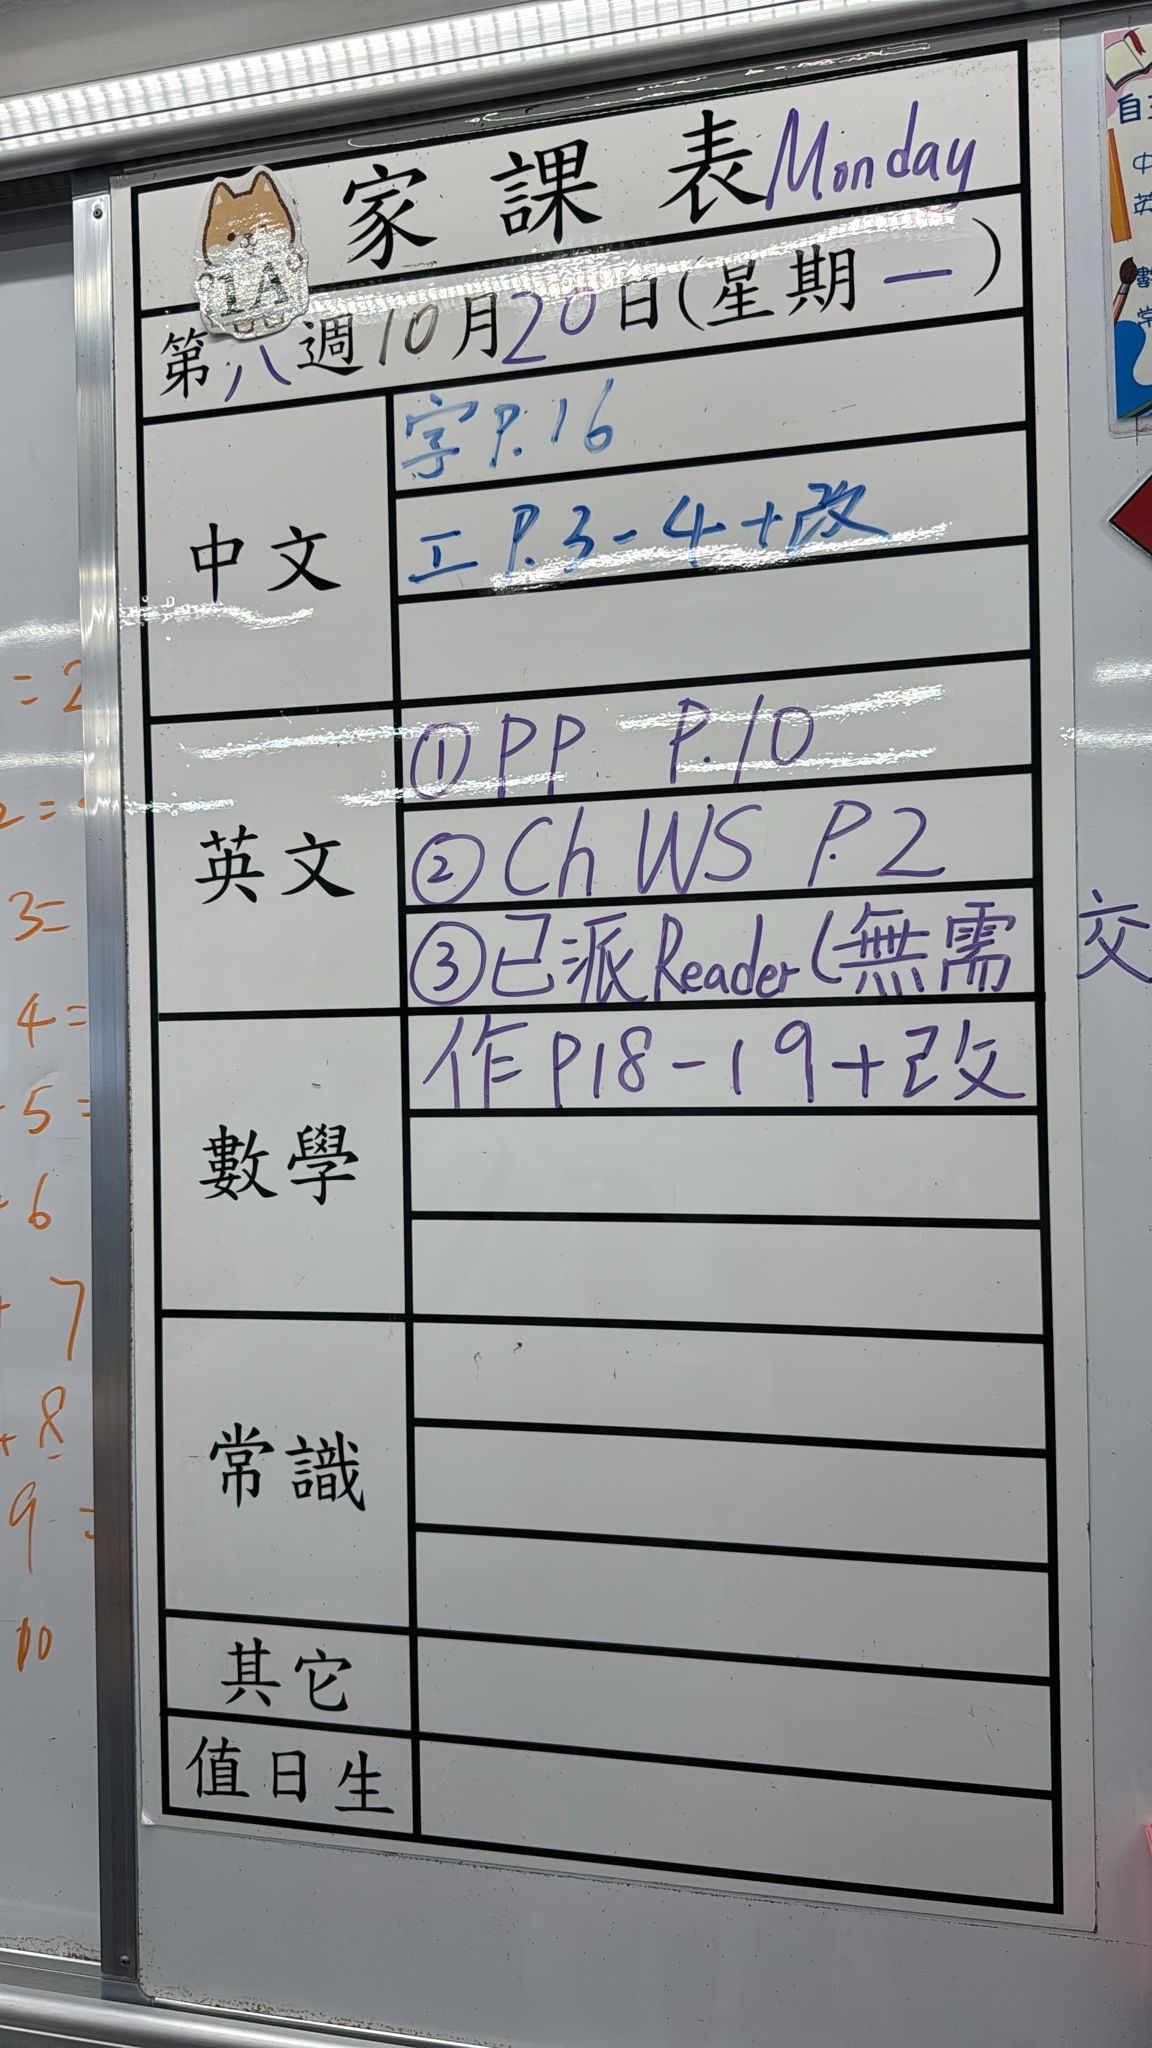 家課表 Monday
1A
第八週10月20日(星期一)
中文
字P.16
工 P.3-4+改
英文
①PP P.10
②Ch WS P.2
③已派Reader(無需交
數學
作P18-19+改
常識
其它
值日生
= 2
2=
3=
4=
5=
6
7
+ 8
9 =
10
自
中
英
數
常